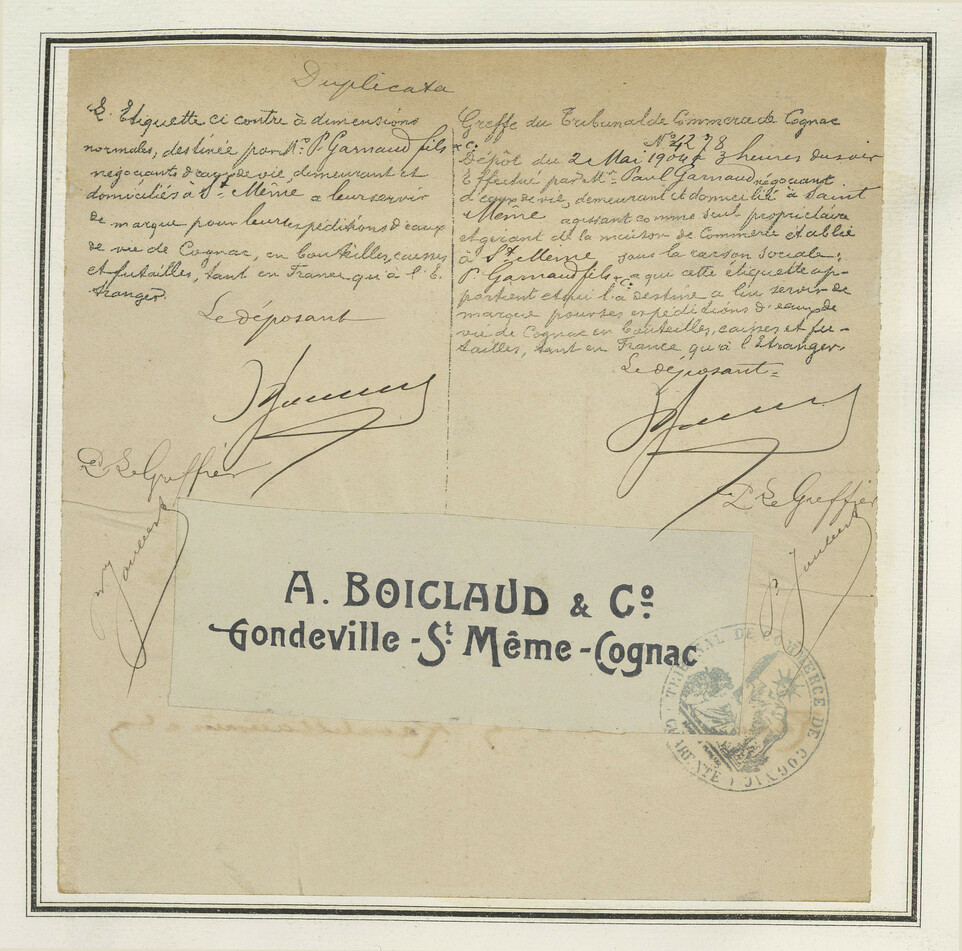 Duplicata
L'Etiquette ci contre à dimensions
normales, destinée par Mr. P. Garnaud fils & Co.
négociants d'eaux de vie, demeurant et
domiciliés à St Même a leur servir
de marque pour leurs expéditions d'eaux
de vie de Cognac, en bouteilles, caisses
et futailles, tant en France qu'à l'E
tranger.
Le déposant
Pr Le Greffier
Greffe du Tribunal de Commerce de Cognac
No 4278
Dépôt du 2 Mai 1904 à 3 heures du soir
Effectué par Mr. Paul Garnaud négociant
d'eaux de vie, demeurant et domicilié à Saint
Même agissant comme seul propriétaire
et gérant de la maison de Commerce établie
à St Même sous la raison sociale:
P. Garnaud fils & Co. a qui cette étiquette ap-
partient et qui l'a destine a lui servir de
marque pour ses expéditions d'eaux de
vie de Cognac en bouteilles, caisses et fu-
tailles, tant en France qu'à l'Etranger.
Le déposant=
Pr Le Greffier
A. BOICLAUD & Co
Gondeville - St Même - Cognac
TRIBUNAL DE COMMERCE DE COGNAC
CHARENTE